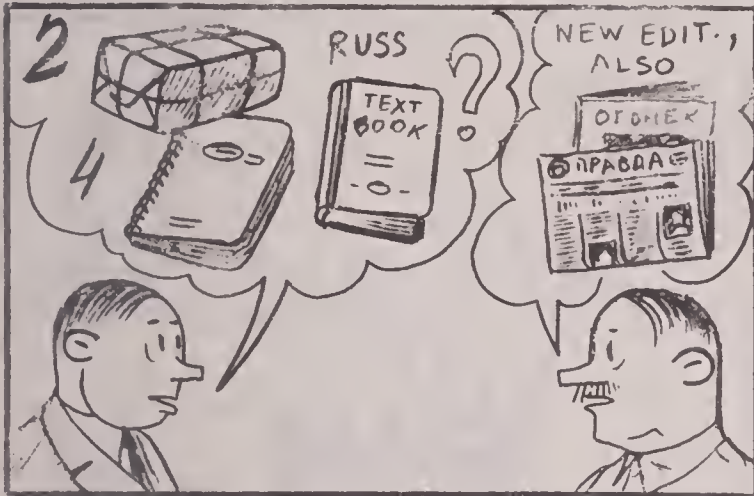 2
4
RUSS
TEXT
BOOK
?
NEW EDIT.,
ALSO
ОГОНЕК
ПРАВДА